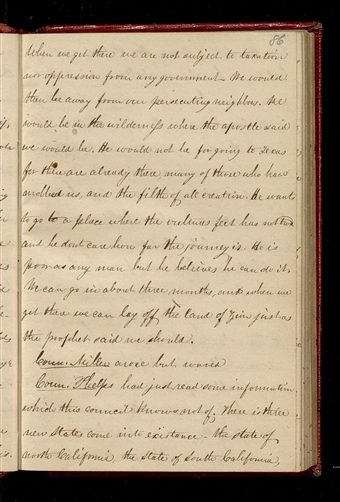 86
When we get there we are not subject to taxation
nor oppression from any government. We would
then be away from our persecuting neighbors. We
would be in the wilderness where the apostle said
we would be. He would not be for going to Texas
for there are already there many of those who have
mobbed us, and the filth of all creation. He wants
to go to a place where the vultures feet has not trod
and he dont care how far the journey is. He is
poor as any man but he believes he can do it.
We can go in about three months, and when we
get there we can lay off the land of Zion just as
the prophet said we should.
Coun. Miller arose but waved
Coun. Phelps had just read some information,
which this council knows not of. There is three
new States come into existance. the State of
North California, the State of South California,